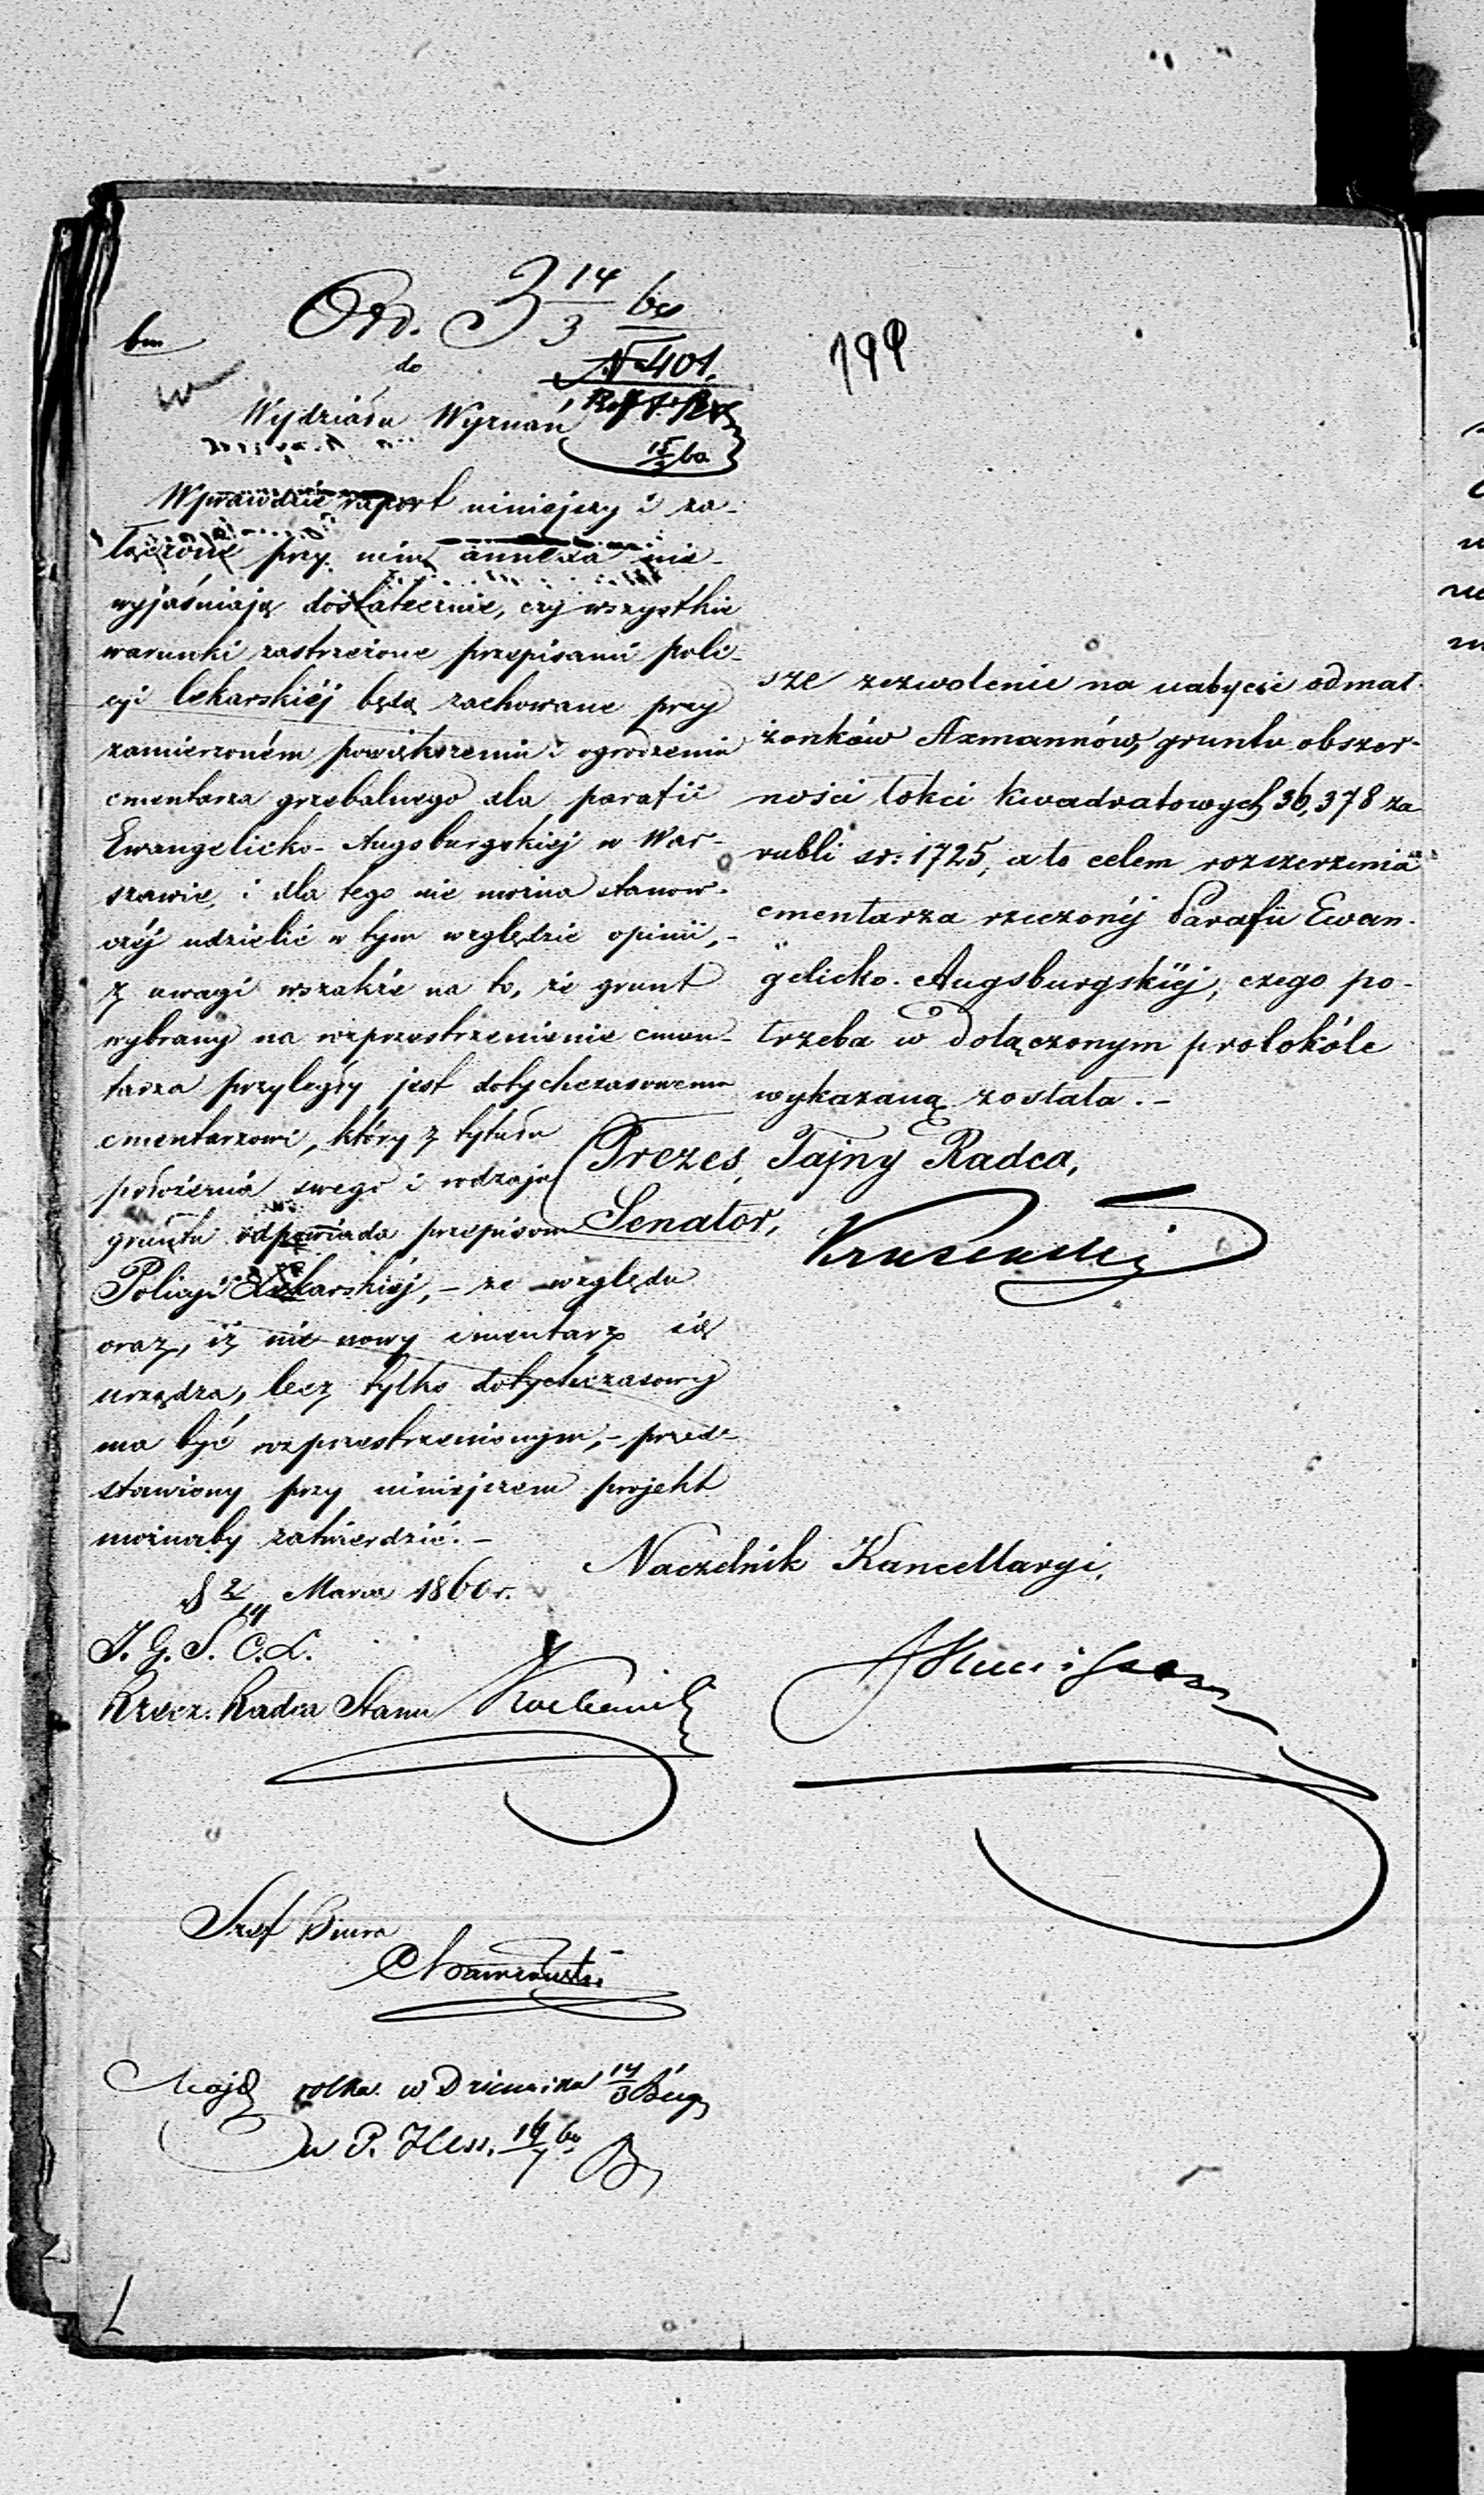 bm
Ord. 3 14/3 60
do
№ 401.
199
Wydziału Wyznań
15/3 60.
Wprawdzie raport niniejszy i za-
łączone przy nim annexa nie-
wyjaśniają dostatecznie, czy wszystkie
warunki zastrzeżone przepisami poli-
cyi lekarskiéj będą zachowane przy
zamierzoném powiększeniu i ogrodzeniu
cmentarza grzebalnego dla parafii
Ewangelicko-Augsburgskiéj w War-
szawie, i dla tego nie można stanow-
czéj udzielić w tym względzie opinii,-
z uwagi wszakże na to, że grunt
wybrany na rozprzestrzenienie cmen-
tarza przyległy jest dotychczasowemu
cmentarzowi, który z tytułu
położenia swego i rodzaju
gruntu odpowiada przepisom
Policyi Lekarskiéj,- ze względu
oraz, iż nie nowy cmentarz się
urządza, lecz tylko dotychczasowy
ma być rozprzestrzenionym,- przed-
stawiony przy niniejszem projekt
możnaby zatwierdzić.-
d 2/14 Marca 1860 r.
J. G. S. C. L.
Rzecz. Radca Stanu
Szef Biura
w Dzienniku 14/3
P. Hess.
sze zezwolenie na nabycie od mał-
żonków Axmannów, gruntu obszer-
ności łokci kwadratowych 36,378 za
rubli sr: 1725, a to celem rozszerzenia
cmentarza rzeczonéj Parafii Ewan-
gelicko-Augsburgskiéj, czego po-
trzeba w dołączonym protokóle
wykazaną została.-
Prezes, Tajny Radca,
Senator,
Naczelnik Kancellaryi,